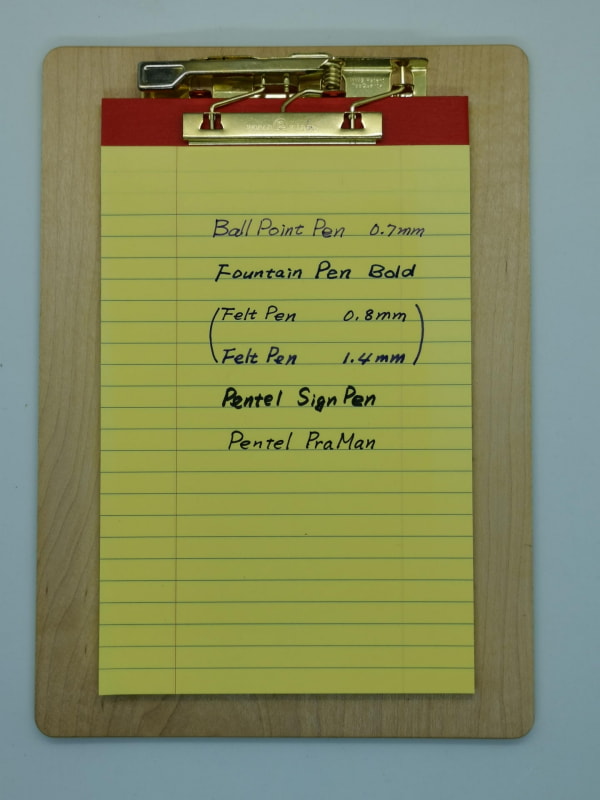 Ball Point Pen 0.7mm
Fountain Pen Bold
(Felt Pen 0.8mm
Felt Pen 1.4mm)
Pentel Sign Pen
Pentel PraMan